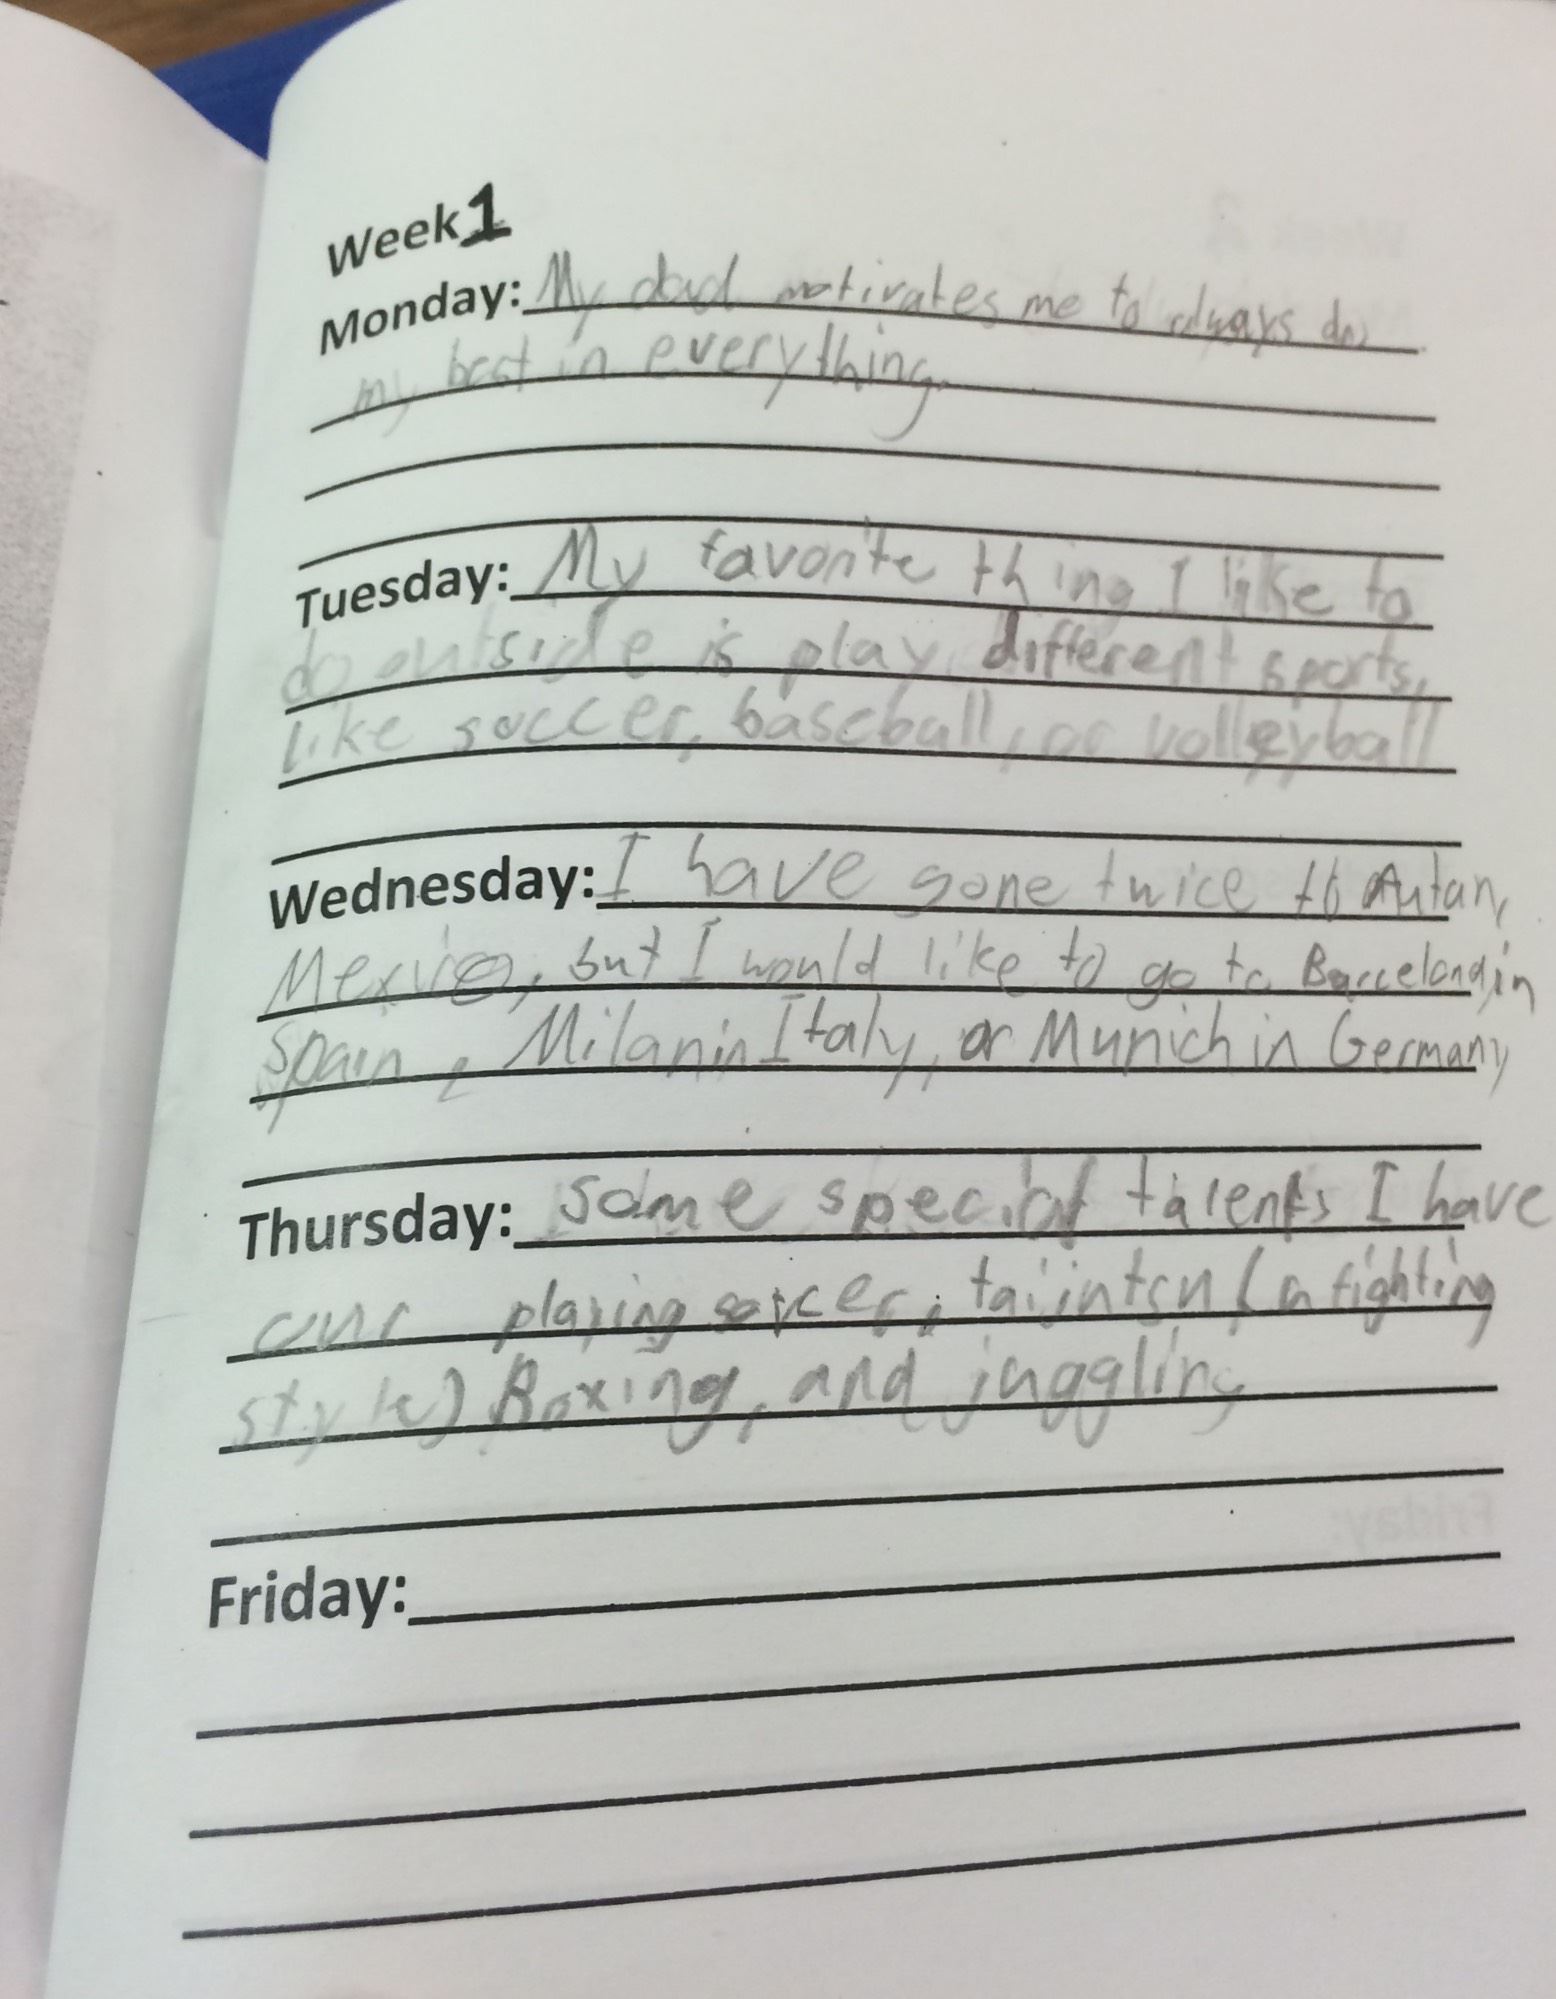 Week 1
Monday: My dad motivates me to always do
my best in everything.
Tuesday: My favorite thing I like to
do outside is play different sports,
like soccer, baseball, or volleyball
Wednesday: I have gone twice to Autan,
Mexico, but I would like to go to Barcelona, in
Spain, Milan in Italy, or Munich in Germany
Thursday: Some special talents I have
are playing soccer, taijntsu (a fighting
style) Boxing, and juggling
Friday: